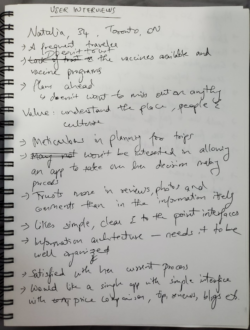 USER INTERVIEWS
Natalia, 34, Toronto, ON
→ A frequent traveler
Doesn't trust
→ the vaccines available and
vaccine programs
→ Plans ahead
↳ doesn't want to miss out on anything
Value: understand the place, people &
culture
→ Meticulous in planning for trips
→ May not won't be interested in allowing
an app to take over her decision making
process
→ Trusts more in reviews, photos and
comments than in the information itself
→ Likes simple, clear & to the point interfaces
→ Information architecture — needs it to be
well organized
→ Satisfied with her current process
→ Would like a simple app with simple interface
with comparison, reviews, blogs etc.